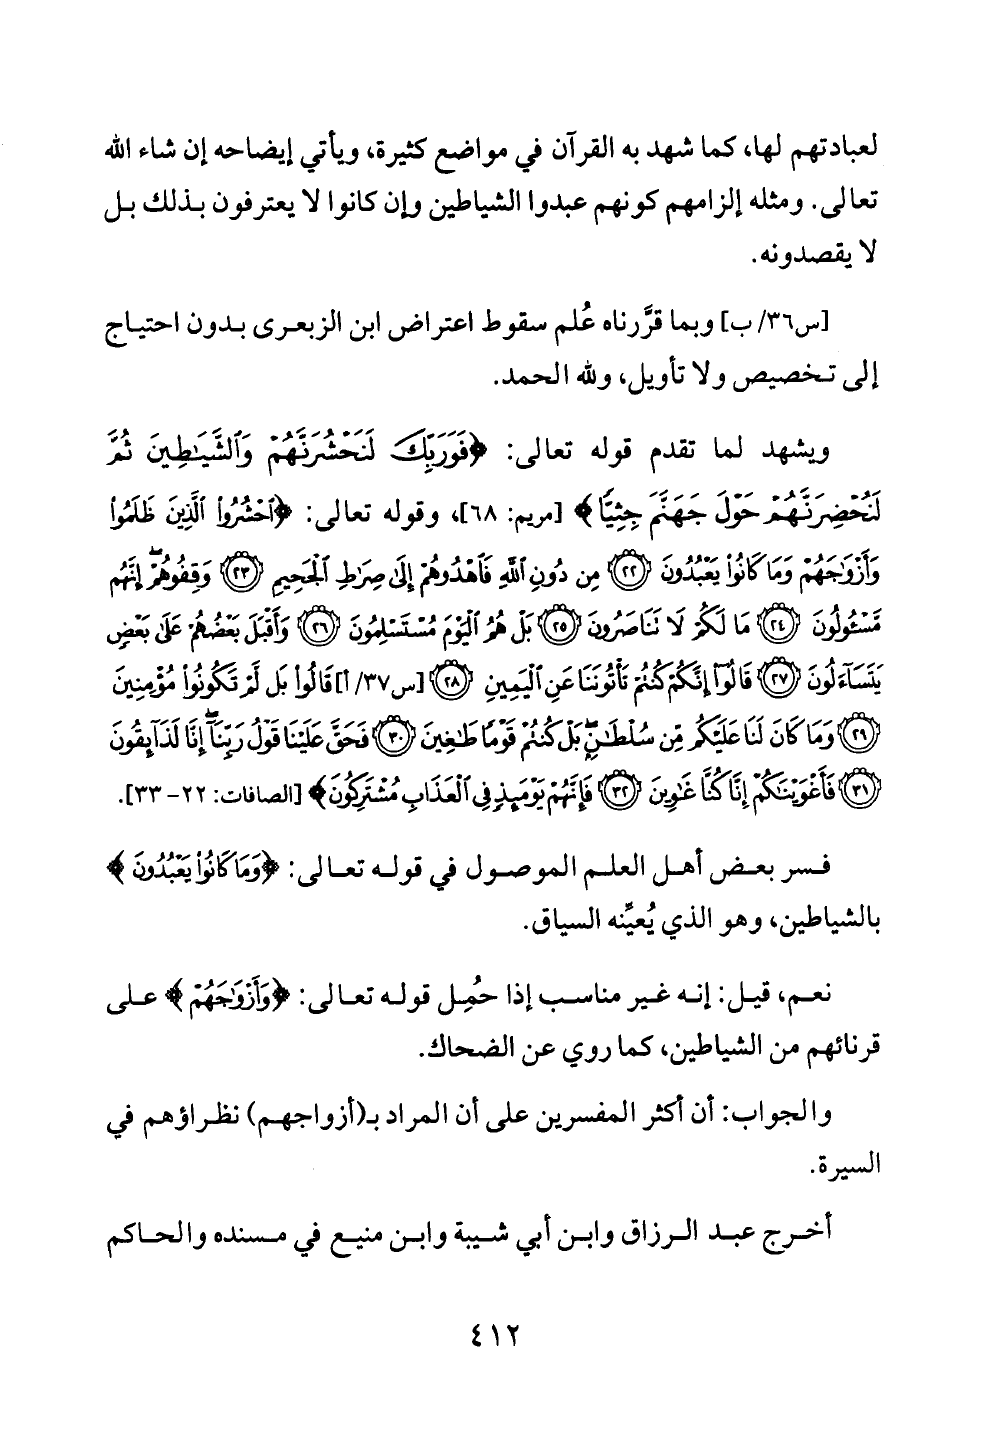 لعبادتهم لها، كما شهد به القرآن في مواضع كثيرة، ويأتي إيضاحه إن شاء الله
تعالى. ومثله إلزامهم كونهم عبدوا الشياطين وإن كانوا لا يعترفون بذلك بل
لا يقصدونه.
[س٣٦/ ب] وبما قرَّرناه عُلم سقوط اعتراض ابن الزبعرى بدون احتياج
إلى تخصيص ولا تأويل، ولله الحمد.
ويشهد لما تقدم قوله تعالى: ﴿فَوَرَبِّكَ لَنَحْشُرَنَّهُمْ وَٱلشَّيَٰطِينَ ثُمَّ
لَنُحْضِرَنَّهُمْ حَوْلَ جَهَنَّمَ جِثِيًّا﴾ [مريم: ٦٨]، وقوله تعالى: ﴿ٱحْشُرُوا۟ ٱلَّذِينَ ظَلَمُوا۟
وَأَزْوَٰجَهُمْ وَمَا كَانُوا۟ يَعْبُدُونَ ﴿٢٢﴾ مِن دُونِ ٱللَّهِ فَٱهْدُوهُمْ إِلَىٰ صِرَٰطِ ٱلْجَحِيمِ ﴿٢٣﴾ وَقِفُوهُمْ ۖ إِنَّهُم
مَّسْـُٔولُونَ ﴿٢٤﴾ مَا لَكُمْ لَا تَنَاصَرُونَ ﴿٢٥﴾ بَلْ هُمُ ٱلْيَوْمَ مُسْتَسْلِمُونَ ﴿٢٦﴾ وَأَقْبَلَ بَعْضُهُمْ عَلَىٰ بَعْضٍ
يَتَسَآءَلُونَ ﴿٢٧﴾ قَالُوٓا۟ إِنَّكُمْ كُنتُمْ تَأْتُونَنَا عَنِ ٱلْيَمِينِ ﴿٢٨﴾ [س٣٧/ أ] قَالُوا۟ بَل لَّمْ تَكُونُوا۟ مُؤْمِنِينَ
﴿٢٩﴾ وَمَا كَانَ لَنَا عَلَيْكُم مِّن سُلْطَٰنٍۭ ۖ بَلْ كُنتُمْ قَوْمًا طَٰغِينَ ﴿٣٠﴾ فَحَقَّ عَلَيْنَا قَوْلُ رَبِّنَآ ۖ إِنَّا لَذَآئِقُونَ
﴿٣١﴾ فَأَغْوَيْنَٰكُمْ إِنَّا كُنَّا غَٰوِينَ ﴿٣٢﴾ فَإِنَّهُمْ يَوْمَئِذٍ فِى ٱلْعَذَابِ مُشْتَرِكُونَ﴾ [الصافات: ٢٢- ٣٣].
فسر بعض أهل العلم الموصول في قوله تعالى: ﴿وَمَا كَانُوا۟ يَعْبُدُونَ﴾
بالشياطين، وهو الذي يُعيِّنه السياق.
نعم، قيل: إنه غير مناسب إذا حُمِل قوله تعالى: ﴿وَأَزْوَٰجَهُمْ﴾ على
قرنائهم من الشياطين، كما روي عن الضحاك.
والجواب: أن أكثر المفسرين على أن المراد بـ(أزواجهم) نظراؤهم في
السيرة.
أخرج عبد الرزاق وابن أبي شيبة وابن منيع في مسنده والحاكم
٤١٢